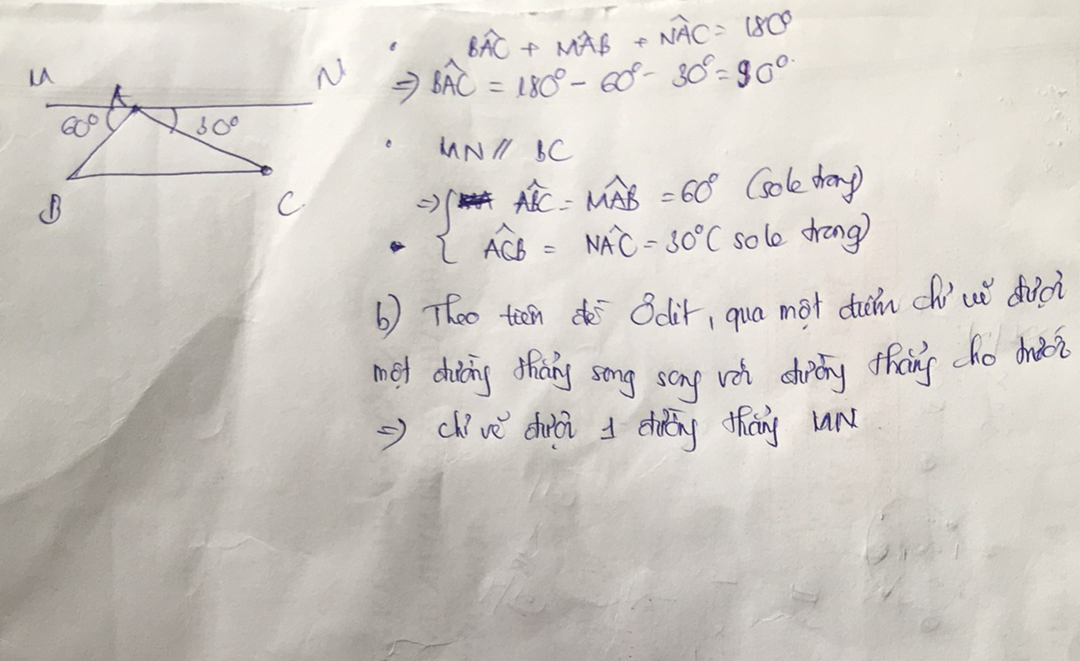 M
A
N
60°
30°
B
C
• BÂC + MÂB + NÂC = 180°
⇒ BÂC = 180° - 60° - 30° = 90°
• MN // BC
⇒ { AB̂C = MÂB = 60° (sole trong)
• AĈB = NÂC = 30° (sole trong)
b) Theo tiên đề Ơclit, qua một điểm chỉ vẽ được
một đường thẳng song song với đường thẳng cho trước
⇒ chỉ vẽ được 1 đường thẳng MN